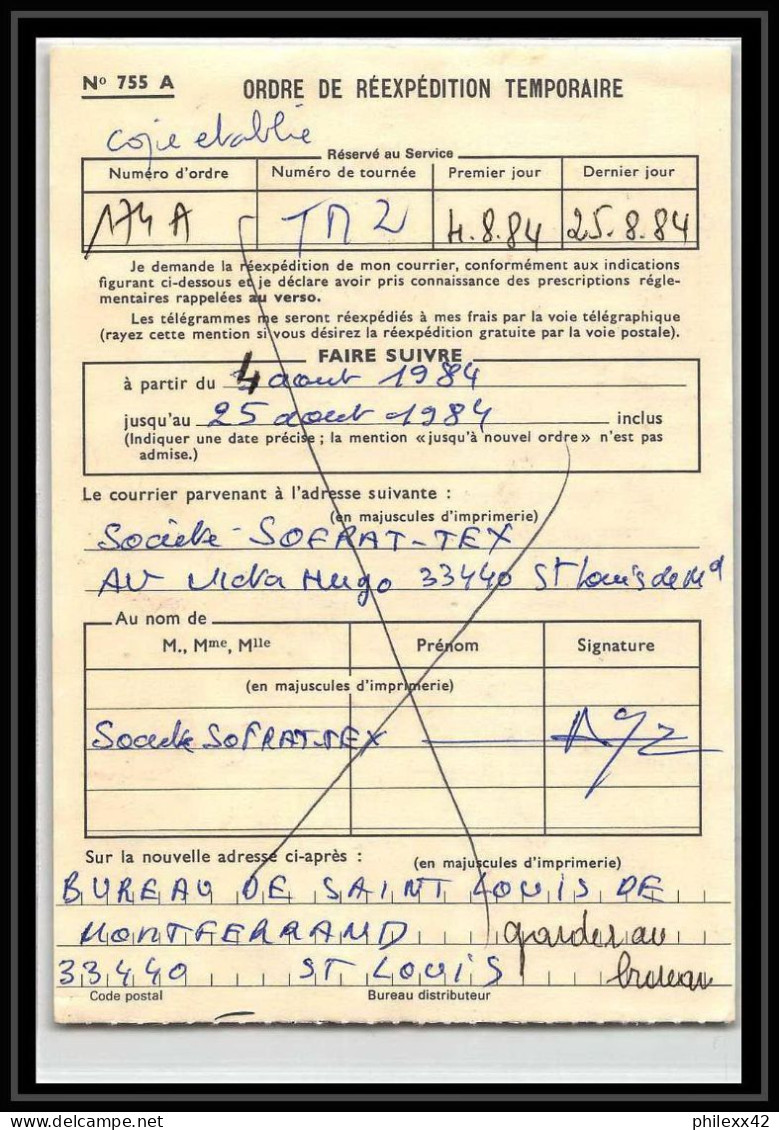 Nº 755 A
ORDRE DE RÉEXPÉDITION TEMPORAIRE
copie etablie
Réservé au Service
Numéro d'ordre Numéro de tournée Premier jour Dernier jour
174 A TM 2 4.8.84 25.8.84
Je demande la réexpédition de mon courrier, conformément aux indications
figurant ci-dessous et je déclare avoir pris connaissance des prescriptions régle-
mentaires rappelées au verso.
Les télégrammes me seront réexpédiés à mes frais par la voie télégraphique
(rayez cette mention si vous désirez la réexpédition gratuite par la voie postale).
FAIRE SUIVRE
à partir du 4 aout 1984
jusqu'au 25 aout 1984 inclus
(Indiquer une date précise ; la mention «jusqu'à nouvel ordre» n'est pas
admise.)
Le courrier parvenant à l'adresse suivante :
(en majuscules d'imprimerie)
Société SOFRAT-TEX
AV Victor Hugo 33440 St Louis de Md
Au nom de
M., Mme, Mlle Prénom Signature
(en majuscules d'imprimerie)
Société SOFRAT-TEX
Sur la nouvelle adresse ci-après : (en majuscules d'imprimerie)
BUREAU DE SAINT LOUIS DE
MONTFERRAND garder au
33440 ST LOUIS bureau
Code postal Bureau distributeur
philexx42